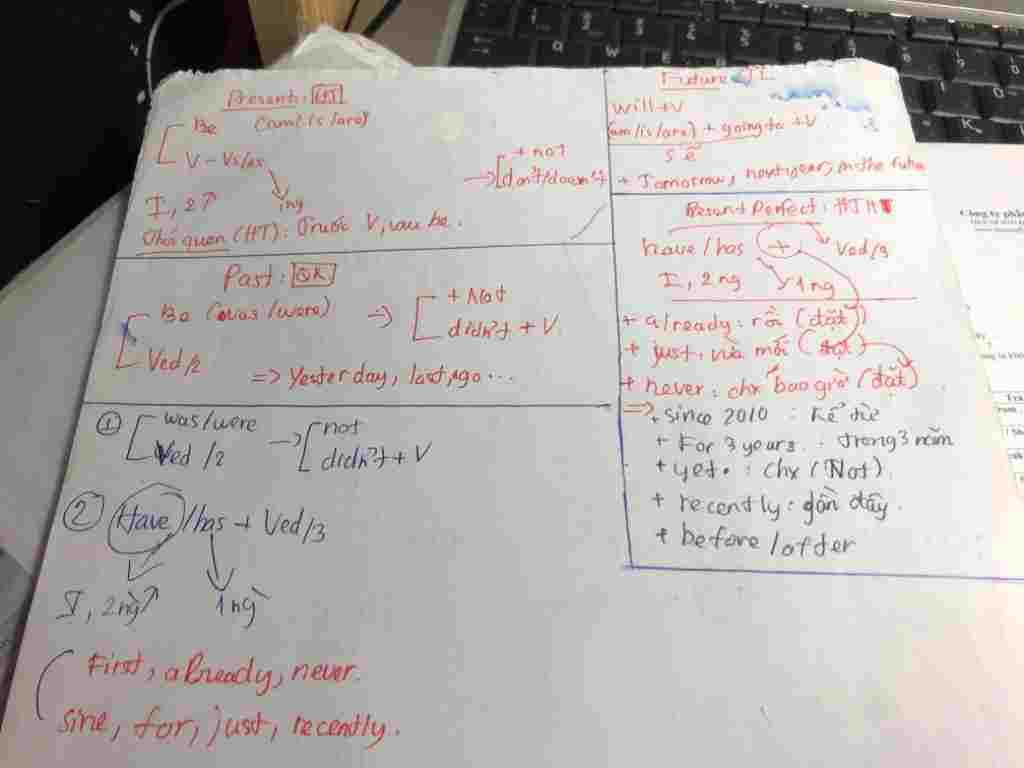 Present: HT
Be (am/is/are)
V - Vs/es
+ not
don't/doesn't
I, 2↗
1ng
Thói quen (HT): Trước V, sau be.
Past: QK
Be (was/were)
→
+ Not
didn't + V
Ved/2
=> Yesterday, last, ago...
① was/were
Ved/2
→
not
didn't + V
② Have/has + Ved/3
I, 2ng↗
1 ng
First, already, never.
sine, for, just, recently.
Future: TL
will+V
(am/is/are) + going to + V
sẽ
+ Tomorrow, next year, in the future
Present Perfect: HTHT
have/has + Ved/3
I, 2ng
1ng
+ already: rồi (đặt)
+ just: vừa mới (đặt)
+ never: chx bao giờ (đặt)
=> + since 2010 : Kể từ
+ For 3 years : trong 3 năm
+ yet : chx (Not)
+ recently: gần đây.
+ before/after
Công ty phần